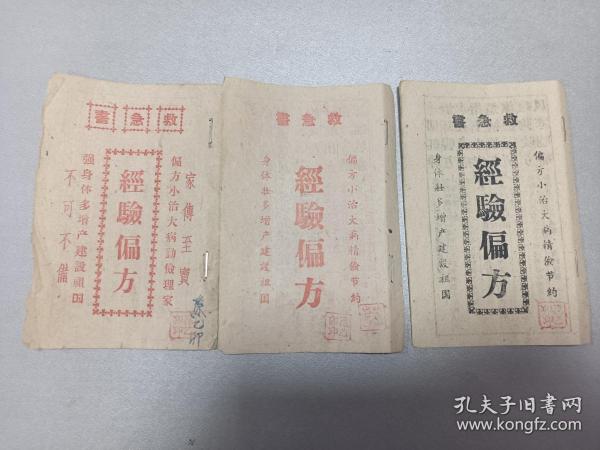 救急書
家傳至寶
偏方小治大病勤儉理家
經驗偏方
强身体多增产建設祖囯
不可不備
救急書
偏方小治大病精儉节約
經驗偏方
身体壮多增产建設祖囯
救急書
偏方小治大病精儉节約
經驗偏方
身体壮多增产建設祖囯
孔夫子旧书网
www.kongfz.com